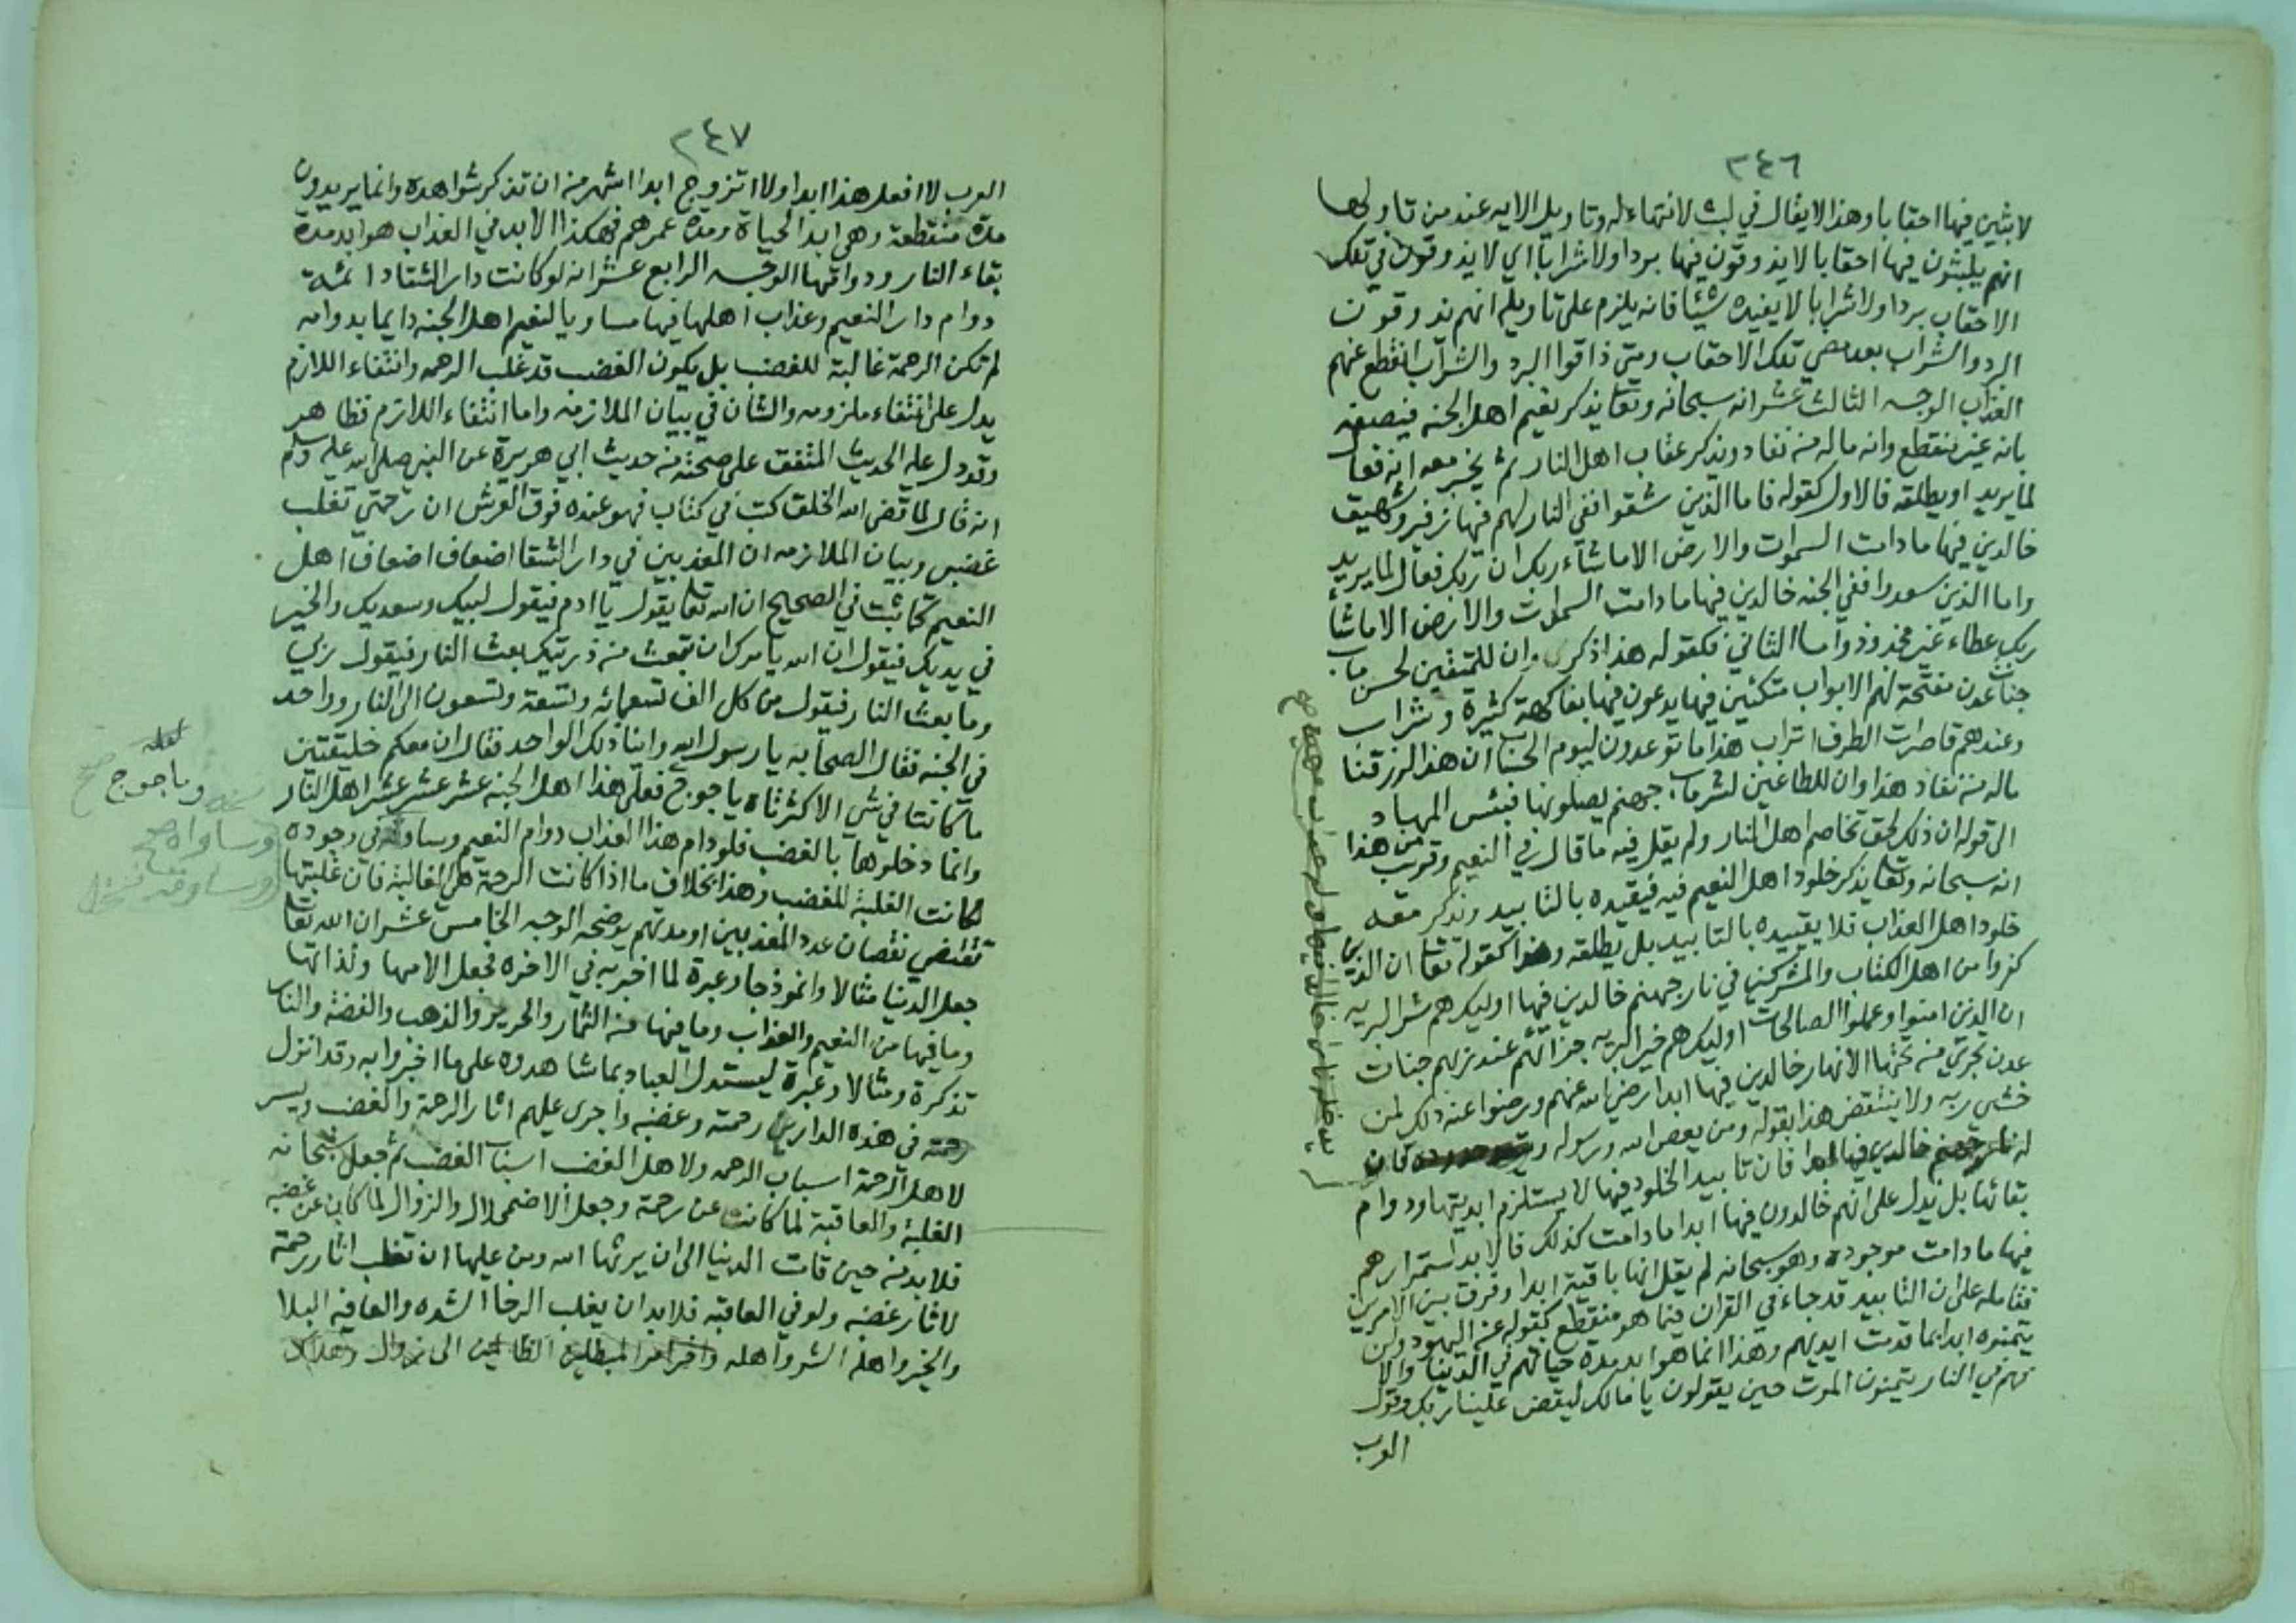 ٢٤٦
لابثين فيها احقابا وهذا لا يقال في لبث لا انتهاء له وتاويل الايه عند من تاولها
انهم يلبثون فيها احقابا لا يذوقون فيها بردا ولا شرابا اي لا يذوقون في تلك
الاحقاب بردا ولا شرابا لا يفيده شيئا فانه يلزم على تاويله انهم يذوقون
البرد والشراب بعد مضي تلك الاحقاب ومتى ذاقوا البرد والشراب انقطع عنهم
العذاب الوجه الثالث عشر انه سبحانه وتعا يذكر نعيم اهل الجنه فيصفه
بانه غير منقطع وانه ماله من نفاد ويذكر عقاب اهل النار ثم يخبر معه انه فعال
لما يريد او يطلقه فالاول كقوله فاما الذين شقوا ففي النار لهم فيها زفير وشهيق
خالدين فيها ما دامت السموات والارض الا ما شاء ربك ان ربك فعال لما يريد
واما الذين سعدوا ففي الجنه خالدين فيها ما دامت السموات والارض الا ما شاء
ربك عطاء غير مجذوذ واما الثاني فكقوله هذا ذكر وان للمتقين لحسن ماب
جنات عدن مفتحة لهم الابواب متكئين فيها يدعون فيها بفاكهة كثيرة وشراب
وعندهم قاصرات الطرف اتراب هذا ما توعدون ليوم الحساب ان هذا لرزقنا
ماله من نفاد هذا وان للطاغين لشر ماب جهنم يصلونها فبئس المهاد
الى قوله ان ذلك لحق تخاصم اهل النار ولم يقل فيه ما قال في النعيم وقريب من هذا
انه سبحانه وتعا يذكر خلود اهل النعيم فيه فيقيده بالتابيد ويذكر معه
خلود اهل العذاب فلا يقيده بالتابيد بل يطلقه وهذا كقوله تعا ان الذين
كفروا من اهل الكتاب والمشركين في نار جهنم خالدين فيها اوليك هم شر البريه
ان الذين امنوا وعملوا الصالحات اوليك هم خير البريه جزائهم عند ربهم جنات
عدن تجري من تحتها الانهار خالدين فيها ابدا رضي الله عنهم ورضوا عنه ذلك لمن
خشي ربه ولا ينتقض هذا بقوله ومن يعص الله ورسوله فان
له نار جهنم خالدين فيها ابدا فان تابيد الخلود فيها لا يستلزم ابديتها ودوام
بقائها بل يدل على انهم خالدون فيها ابدا ما دامت كذلك فالابد استمرارهم
فيها ما دامت موجوده وهو سبحانه لم يقل انها باقية ابدا وفرق بين الامرين
فتامله على ان التابيد قد جاء في القران فيما هو منقطع كقوله عن اليهود ولن
يتمنوه ابدا بما قدمت ايديهم وهذا انما هو ابد مدة حياتهم في الدنيا والا
فهم في النار يتمنون الموت حين يقولون يا مالك ليقض علينا ربك وقول
العرب
٢٤٧
العرب لا افعل هذا ابدا ولا اتزوج ابدا اشهر من ان تذكر شواهده وانما يريدون
مدة منقطعة وهي ابد الحياة ومدة عمرهم فهكذا الابد في العذاب هو ابد مدة
بقاء النار ودوامها الوجه الرابع عشر انه لو كانت دار الشقا دائمة
دوام دار النعيم وعذاب اهلها فيها مساويا لنعيم اهل الجنه دايما بدوامه
لم تكن الرحمة غالبة للغضب بل يكون الغضب قد غلب الرحمه وانتفاء اللازم
يدل على انتفاء ملزومه والشان في بيان الملازمه واما انتفاء اللازم فظاهر
وقد دل عليه الحديث المتفق على صحته من حديث ابي هريرة عن النبي صلى الله عليه وسلم
انه قال لما قضى الله الخلق كتب في كتاب فهو عنده فوق العرش ان رحمتي تغلب
غضبي وبيان الملازمه ان المعذبين في دار الشقا اضعاف اضعاف اهل
النعيم كما ثبت في الصحيح ان الله تعا يقول يا ادم فيقول لبيك وسعديك والخير
في يديك فيقول ان الله يامرك ان تبعث من ذريتك بعث النار فيقول ربي
وما بعث النار فيقول من كل الف تسعمائه وتسعة وتسعون الى النار وواحد
في الجنه فقال الصحابه يا رسول الله واينا ذلك الواحد فقال ان معكم خليقتين
ما كانتا في شي الا كثرتاه ياجوج فعلى هذا اهل الجنه عشر عشر عشر اهل النار
وانما دخلوها بالغضب فلو دام هذا العذاب دوام النعيم وساواه في وجوده
لكانت الغلبة للغضب وهذا بخلاف ما اذا كانت الرحمة هي الغالبة فان غلبتها
تقتضي نقصان عدد المعذبين او مدتهم يوضحه الوجه الخامس عشر ان الله تعا
جعل الدنيا مثالا وانموذجا وعبرة لما اخبر به في الاخره فجعل الامها ولذاتها
وما فيها من النعيم والعذاب وما فيها من الثمار والحرير والذهب والفضة والنار
تذكرة ومثالا وعبرة ليستدل العباد بما شاهدوه على ما اخبروا به وقد انزل
في هذه الدار رحمته وغضبه واجرى عليهم اثار الرحمة والغضب ويسر
لاهل الرحمة اسباب الرحمه ولاهل الغضب اسباب الغضب ثم جعل سبحانه
الغلبة والعاقبة لما كانت عن رحمة وجعل الاضمحلال والزوال لما كان عن غضبه
فلا بد من حين قامت الدنيا الى ان يرثها الله ومن عليها ان تغلب اثار رحمته
لاثار غضبه ولو في العاقبه فلا بد ان يغلب الرخا الشده والعافيه البلا
والخير واهله الشر واهله
لعله
وماجوج صح
وساواه صح